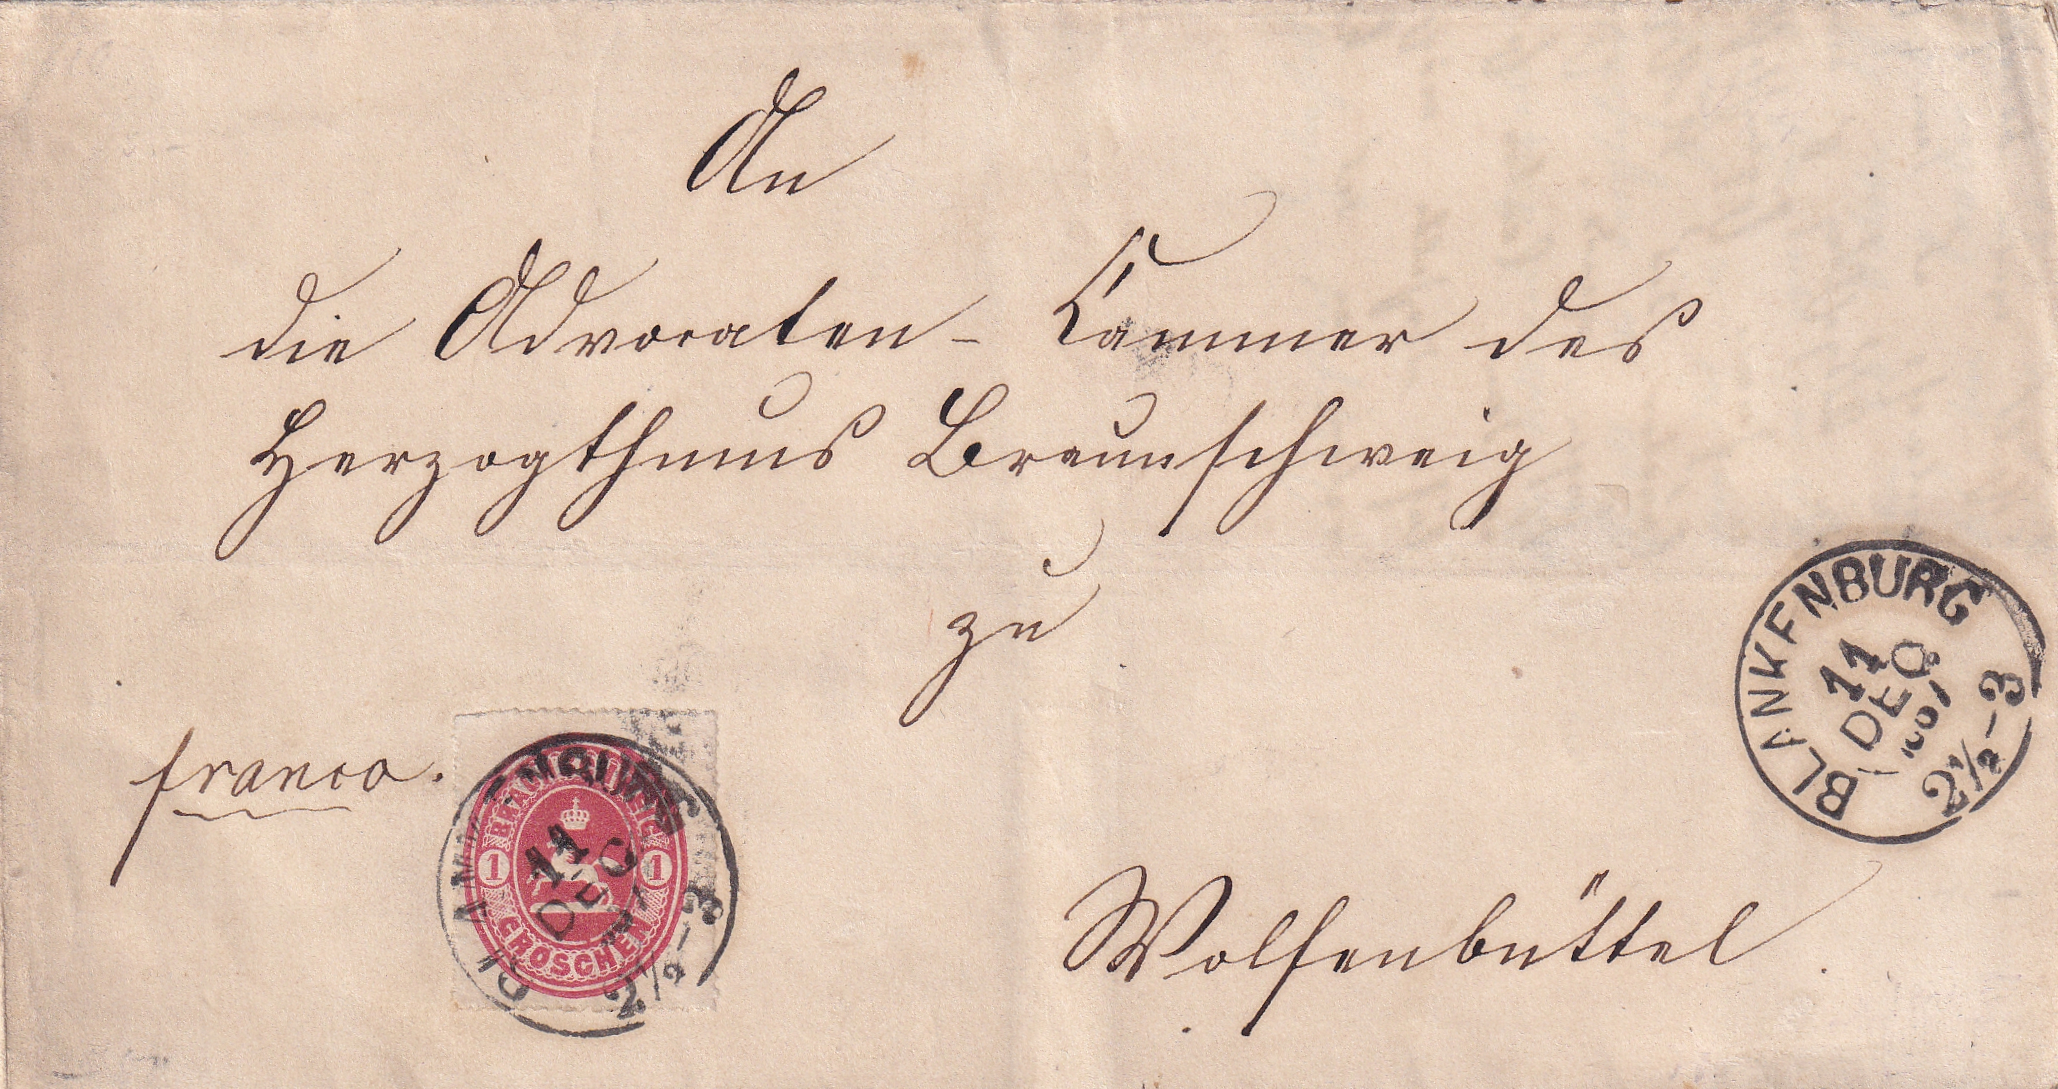 An
die Advocaten-Cammer des
Herzogthums Braunschweig
zu
franco.
Wolfenbüttel
BLANKENBURG
11
DEC
2½-3
BRAUNSCHWEIG
1 1
GROSCHEN
BLANKENBURG
11
DEC
2½-3